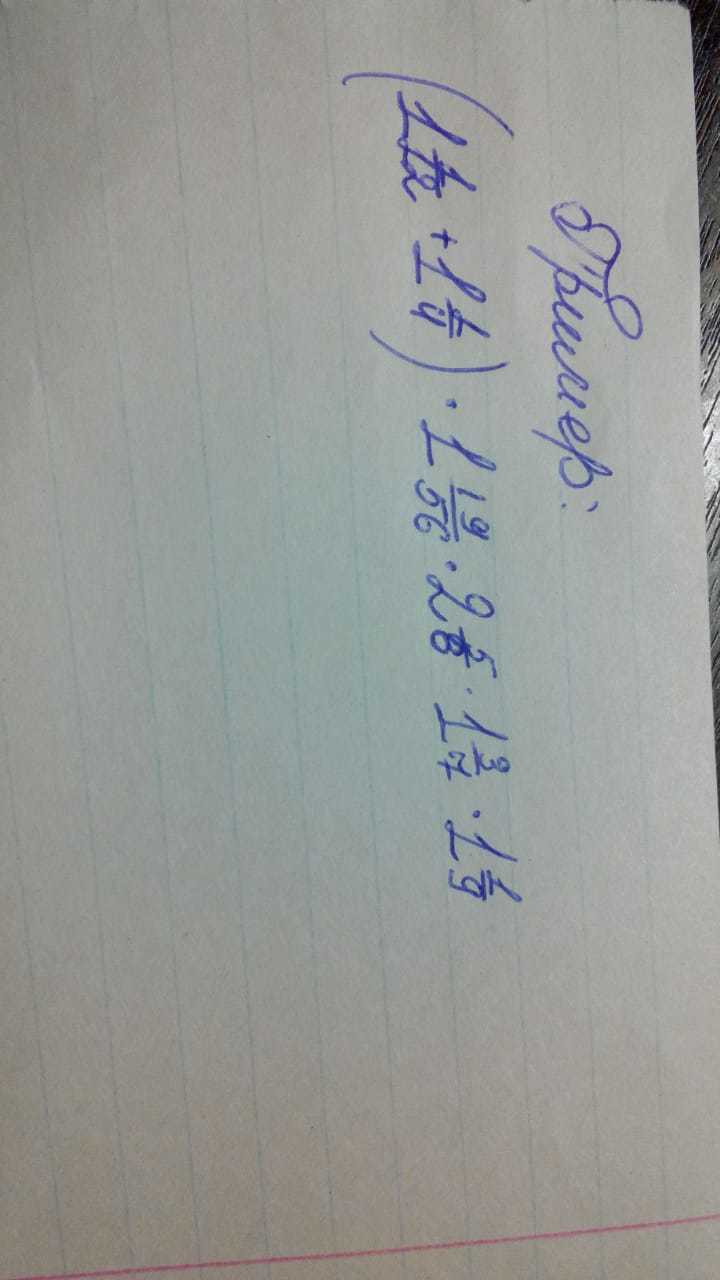 Пример:
(1 1/2 + 1 1/4) · 1 19/56 · 2 5/8 · 1 3/7 · 1 1/9